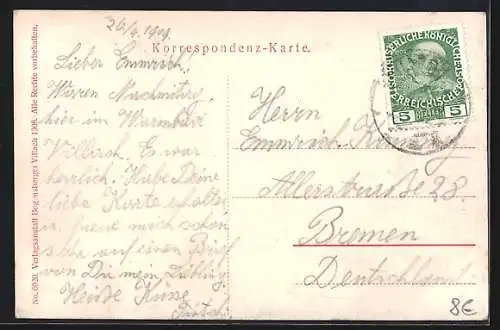 26/9. 1909.
Korrespondenz-Karte.
Lieber Emmerich!
Waren Nachmittag
hier im Warmbad
Villach. Es war
herrlich. Habe Deine
liebe Karte erhalten
u. freue mich schon
sehr auf einen Brief
von Dir mein Liebling
Heiße Küsse
Herrn
Emmrich
Allerstraße 28.
Bremen
Deutschland
KAISERLICHE KÖNIGLICHE
ÖSTERREICHISCHE POST
5 HELLER 5
No. 6020. Verlagsanstalt Villach 1908. Alle Rechte vorbehalten.
8€